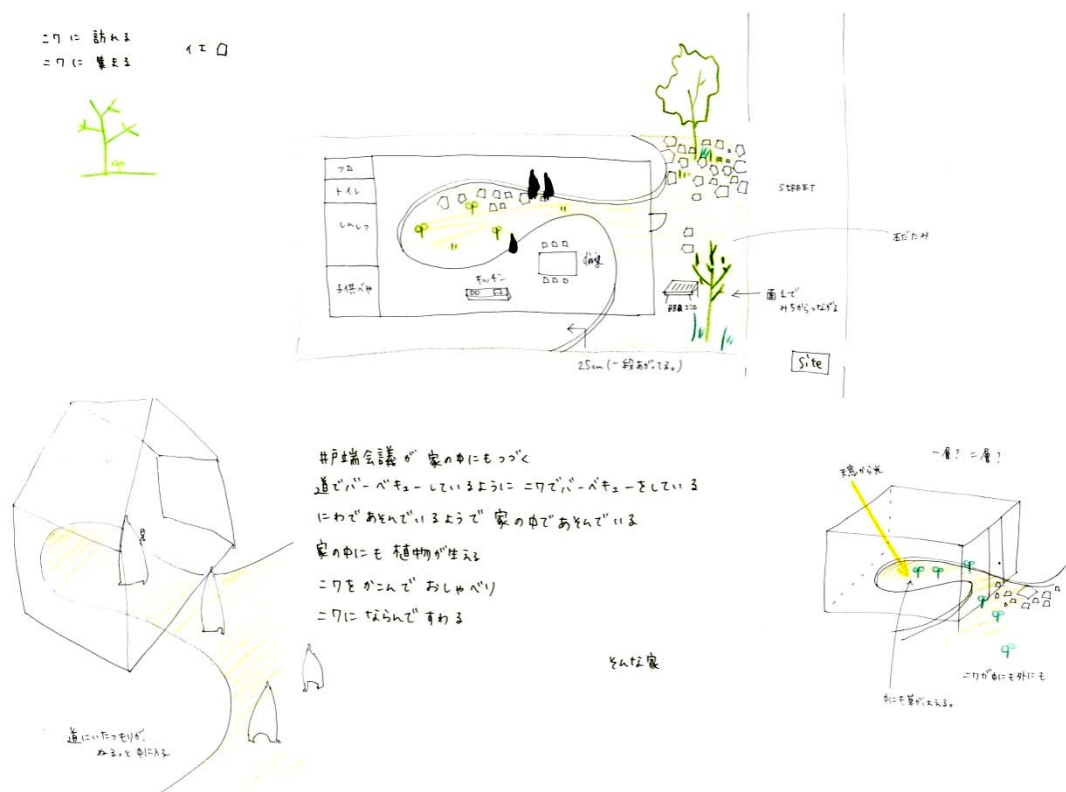 ニワに 訪れる
ニワに 集まる
イエ
フロ
トイレ
しんしつ
子供べや
キッチン
dining
STREET
石だたみ
面として
みちからつながる
25cm(一段あがってる。)
site
井戸端会議が 家の中にもつづく
道でバーベキューしているように ニワでバーベキューをしている
にわであそんでいるようで 家の中であそんでいる
家の中にも 植物が生える
ニワをかこんで おしゃべり
ニワに ならんで すわる
そんな家
道にいたつもりが、
ぬるっと 中に入る
一層? 二層?
天窓から光
ニワが中にも外にも
中にも草がはえる。